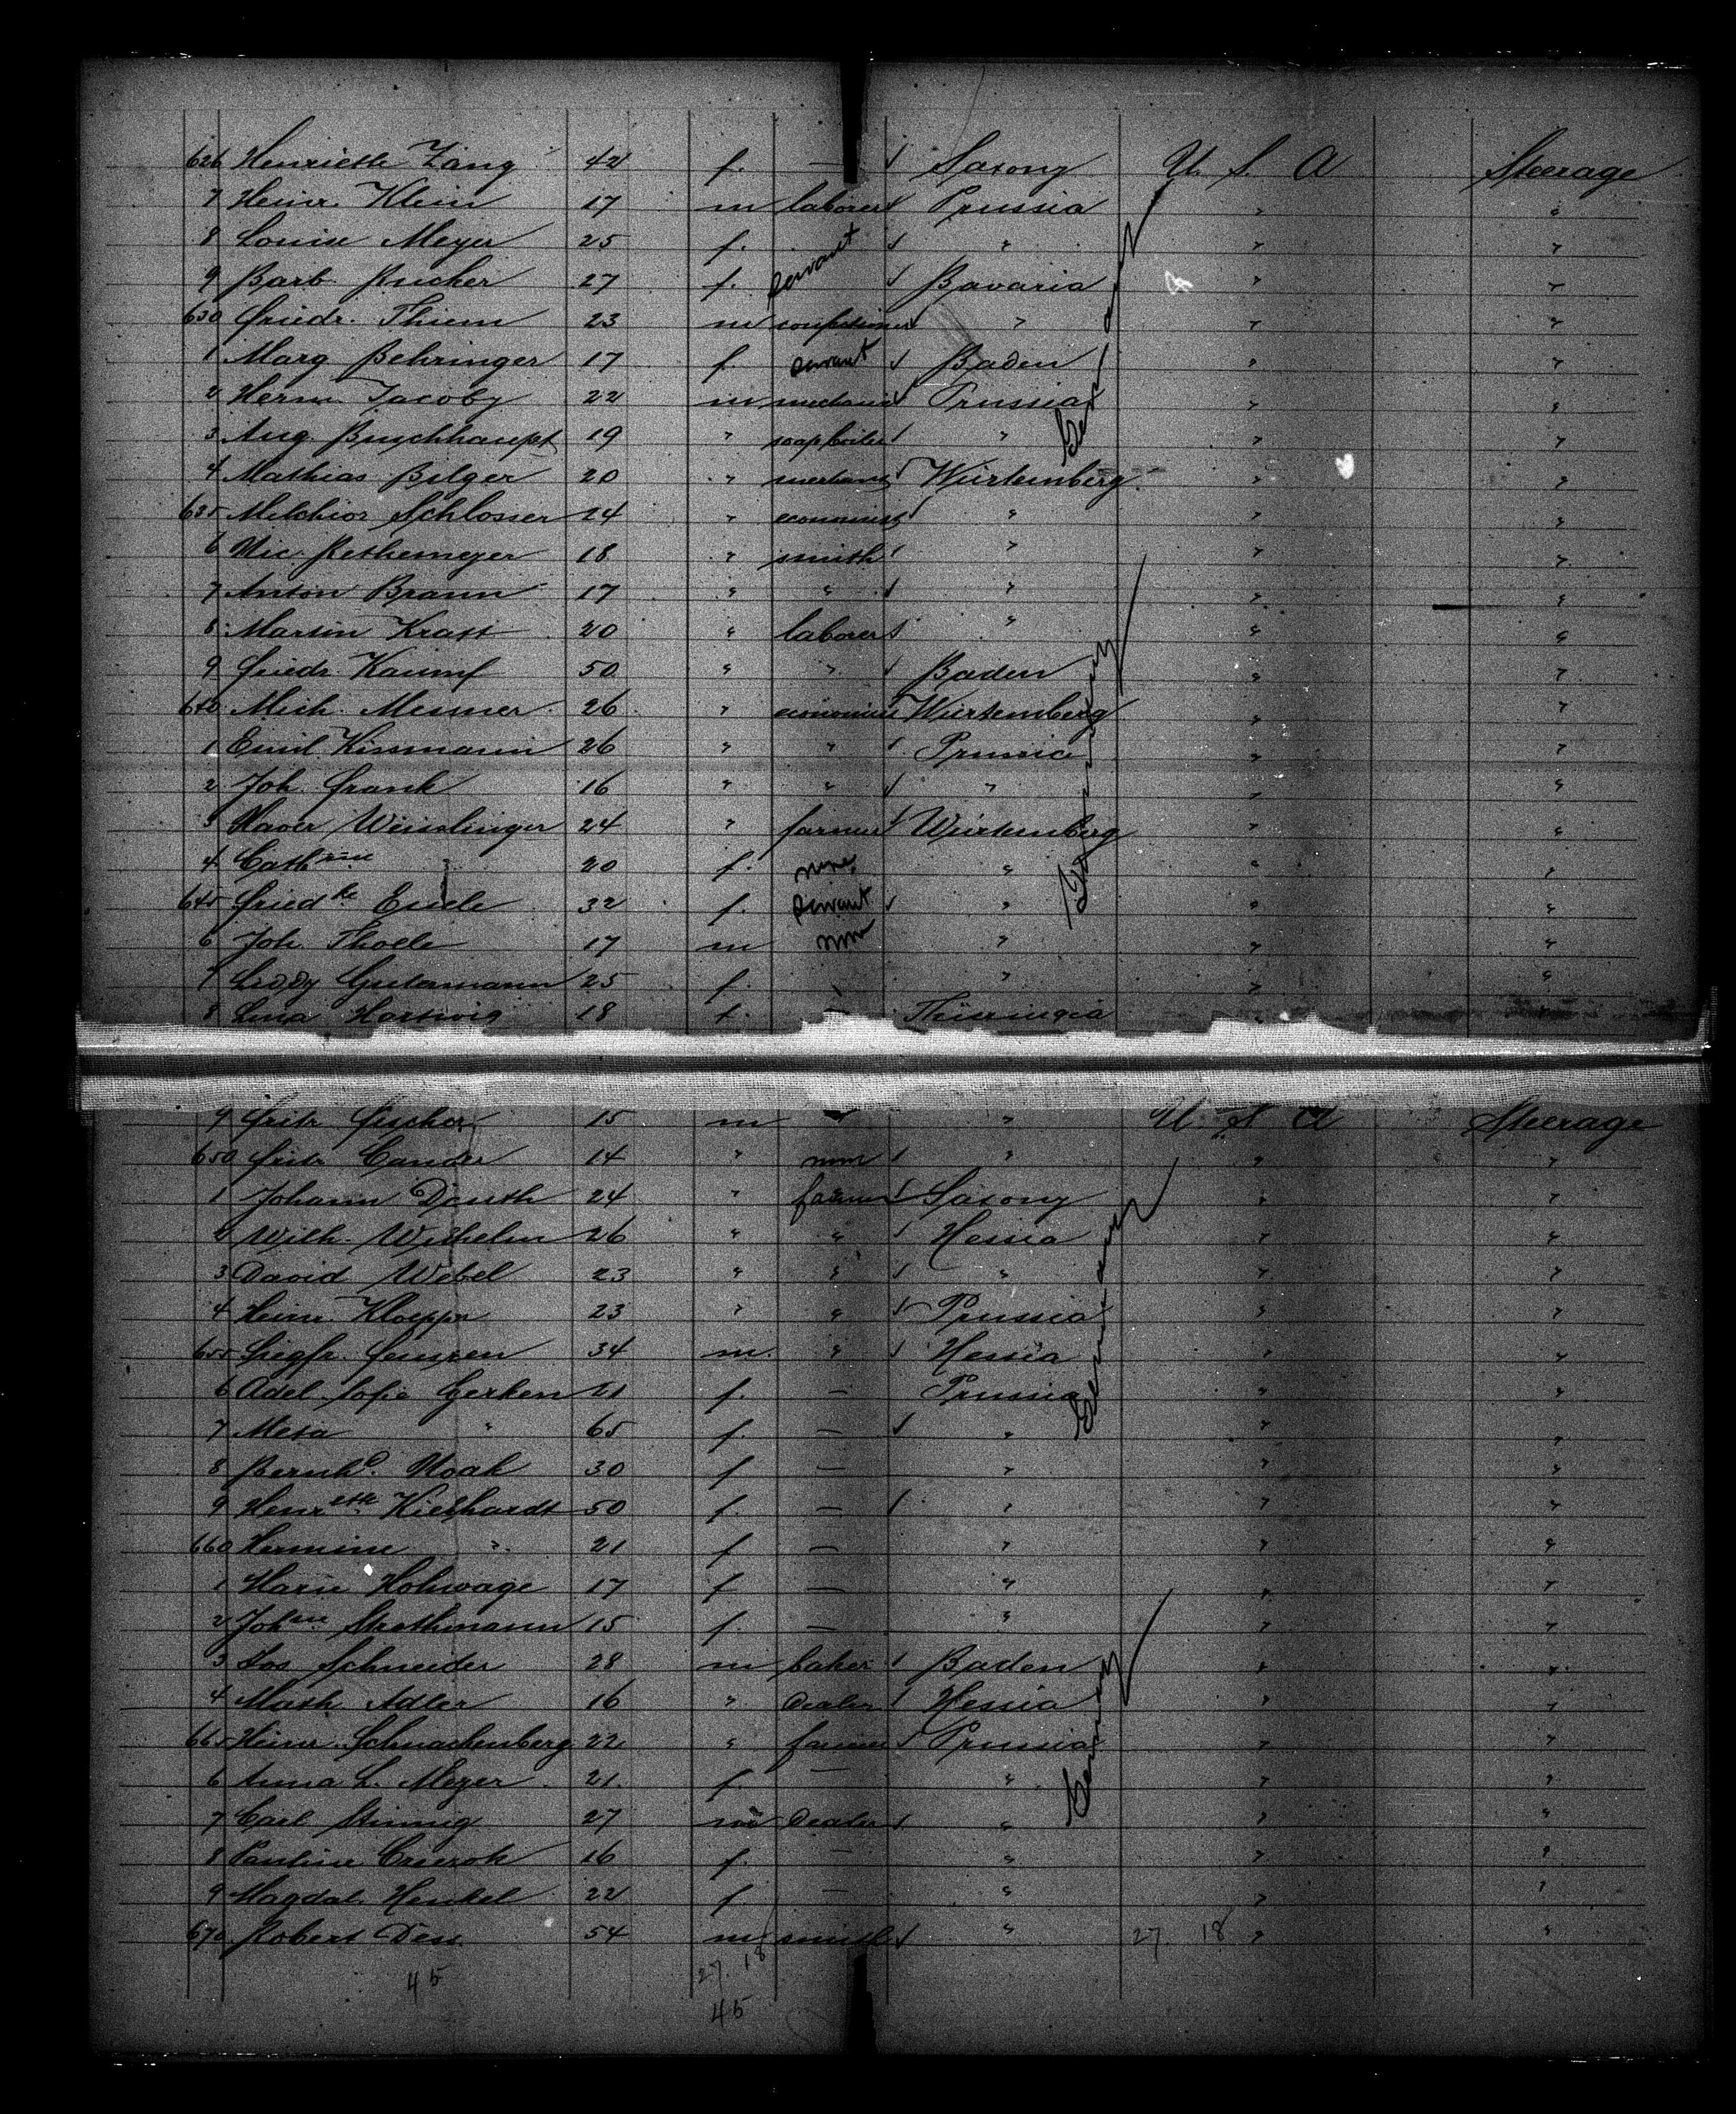 626 Henriette Lang 42 f. — Saxony U. S. A Steerage
7 Heinr. Klein 17 m laborer Prussia " "
8 Louise Meyer 25 f. servant " " "
9 Barb. 27 f. Bavaria " "
630 Friedr. Thiem 23 m confectioner " " "
1 Marg Behringer 17 f. servant Baden " "
2 Herm. Jacoby 22 m mechanic Prussia " "
3 Aug. Buschhaupt 19 " soapboiler " " "
4 Mathias Bilger 20 " merchant Würtemberg " "
635 Melchior Schlosser 24 " economist " " "
6 Nic. Rethemeyer 18 " smith " " "
7 Anton Braun 17 " " " " "
8 Martin Krast 20 " laborer " " "
9 Friedr. 50 " " Baden " "
640 Mich. Mesmer 26 " economist Würtemberg " "
1 Emil Kissmann 26 " " Prussia " "
2 Joh. Frank 16 " " " " "
3 Xaver Weisslinger 24 " farmer Würtemberg " "
4 Cathrine 20 f. none " " "
645 Friedke 32 f. servant " " "
6 Joh. Thoele 17 m none " " "
7 Liddy Gutermann 25 f. " " "
8 Lina Hartwig 18 f. — Thüringia " "
Germany
Germany
9 Fritz Fischer 15 m " " U. S. A Steerage
650 Fritz Cander 14 " none " " "
1 Johann Dauth 24 " farmer Saxony " "
2 Wilh. Wilhelm 26 " " Hessia " "
3 David Webel 23 " " " " "
4 Heinr. Kloeppe 23 " " Prussia " "
655 Siegfr. 34 m. " Hessia " "
6 Adel. Sofie Gerken 21 f. — Prussia " "
7 Meta " 65 f. — " " "
8 Bernhd. Noak 30 f — " " "
9 Henrette Kielhardt 50 f. — " " "
660 Hermine " 21 f — " " "
1 Marie Hohwage 17 f — " " "
2 Johne. Strothmann 15 f. — " " "
3 Jos. Schneider 28 m baker Baden " "
4 Math. Adler 16 " Dealer Hessia " "
665 Heinr. Schnackenberg 22 " farmer Prussia " "
6 Anna L. Meyer 21 f. — " " "
7 Carl 27 m Dealer " " "
8 Pauline 16 f. — " " "
9 Magdal. Henkel 22 f — " " "
670 Robert Dess 54 m smith " 27. 18 " "
Germany
Germany
45 27. 18
45